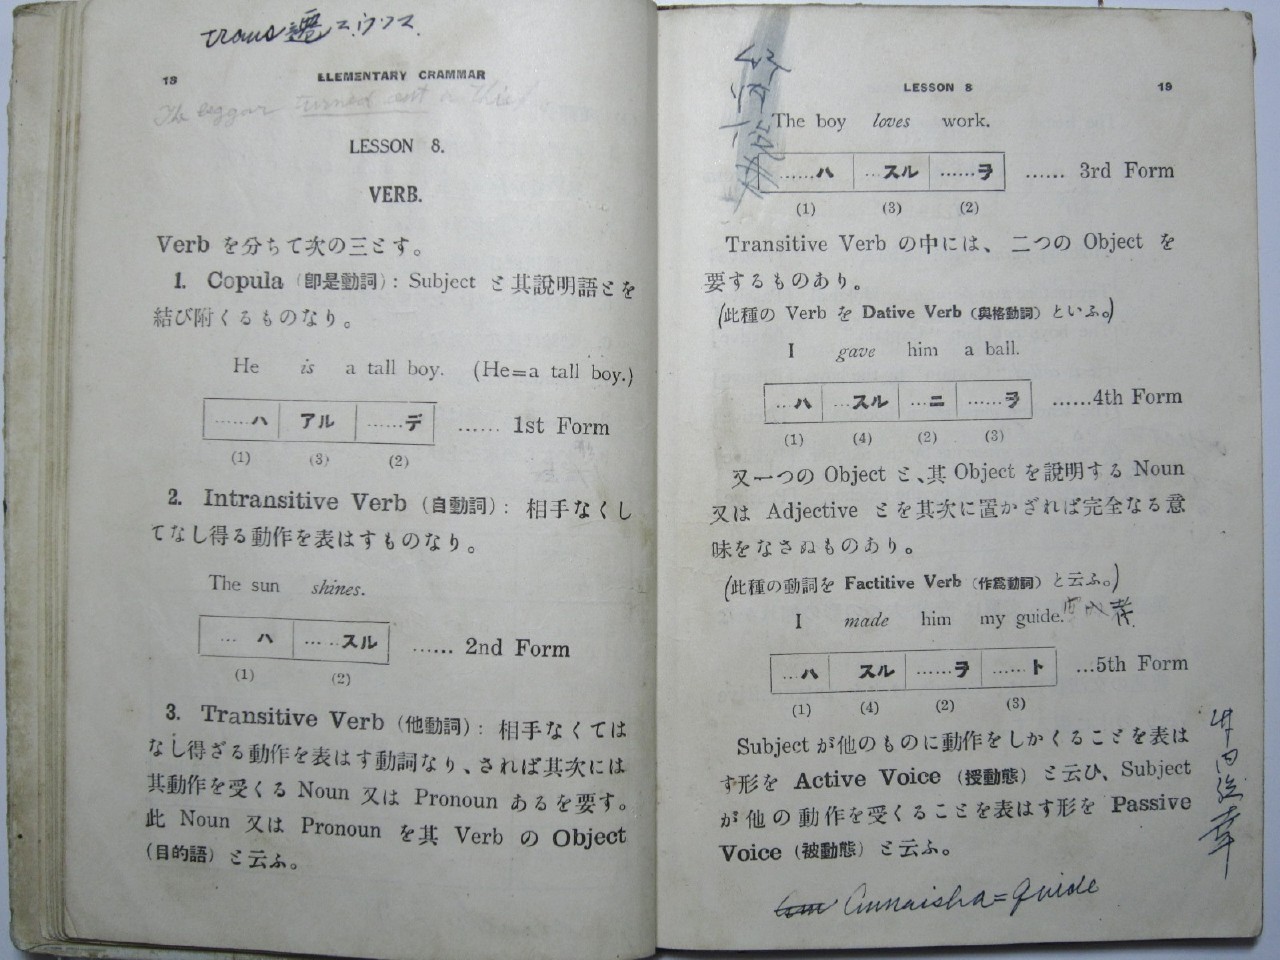 trans遷 エウツス
18 ELEMENTARY GRAMMAR
The beggar turned out a thief
LESSON 8.
VERB.
Verb を分ちて次の三とす。
1. Copula (即是動詞): Subject と其說明語とを
結び附くるものなり。
He is a tall boy. (He=a tall boy.)
......ハ アル ......デ ...... 1st Form
(1) (3) (2)
2. Intransitive Verb (自動詞): 相手なくし
てなし得る動作を表はすものなり。
The sun shines.
... ハ ... ..スル ...... 2nd Form
(1) (2)
3. Transitive Verb (他動詞): 相手なくては
なし得ざる動作を表はす動詞なり、されば其次には
其動作を受くる Noun 又は Pronoun あるを要す。
此 Noun 又は Pronoun を其 Verb の Object
(目的語) と云ふ。
LESSON 8 19
The boy loves work.
......ハ ...スル ......ヲ ...... 3rd Form
(1) (3) (2)
Transitive Verb の中には、二つの Object を
要するものあり。
(此種の Verb を Dative Verb (與格動詞) といふ。)
I gave him a ball.
...ハ ...スル ...ニ ......ヲ ......4th Form
(1) (4) (2) (3)
又一つの Object と、其 Object を說明する Noun
又は Adjective とを其次に置かざれば完全なる意
味をなさぬものあり。
(此種の動詞を Factitive Verb (作爲動詞) と云ふ。)
I made him my guide.
...ハ スル ......ヲ ......ト ...5th Form
(1) (4) (2) (3)
Subject が他のものに動作をしかくることを表は
す形を Active Voice (授動態) と云ひ、Subject
が他の動作を受くることを表はす形を Passive
Voice (被動態) と云ふ。
Annaisha=guide